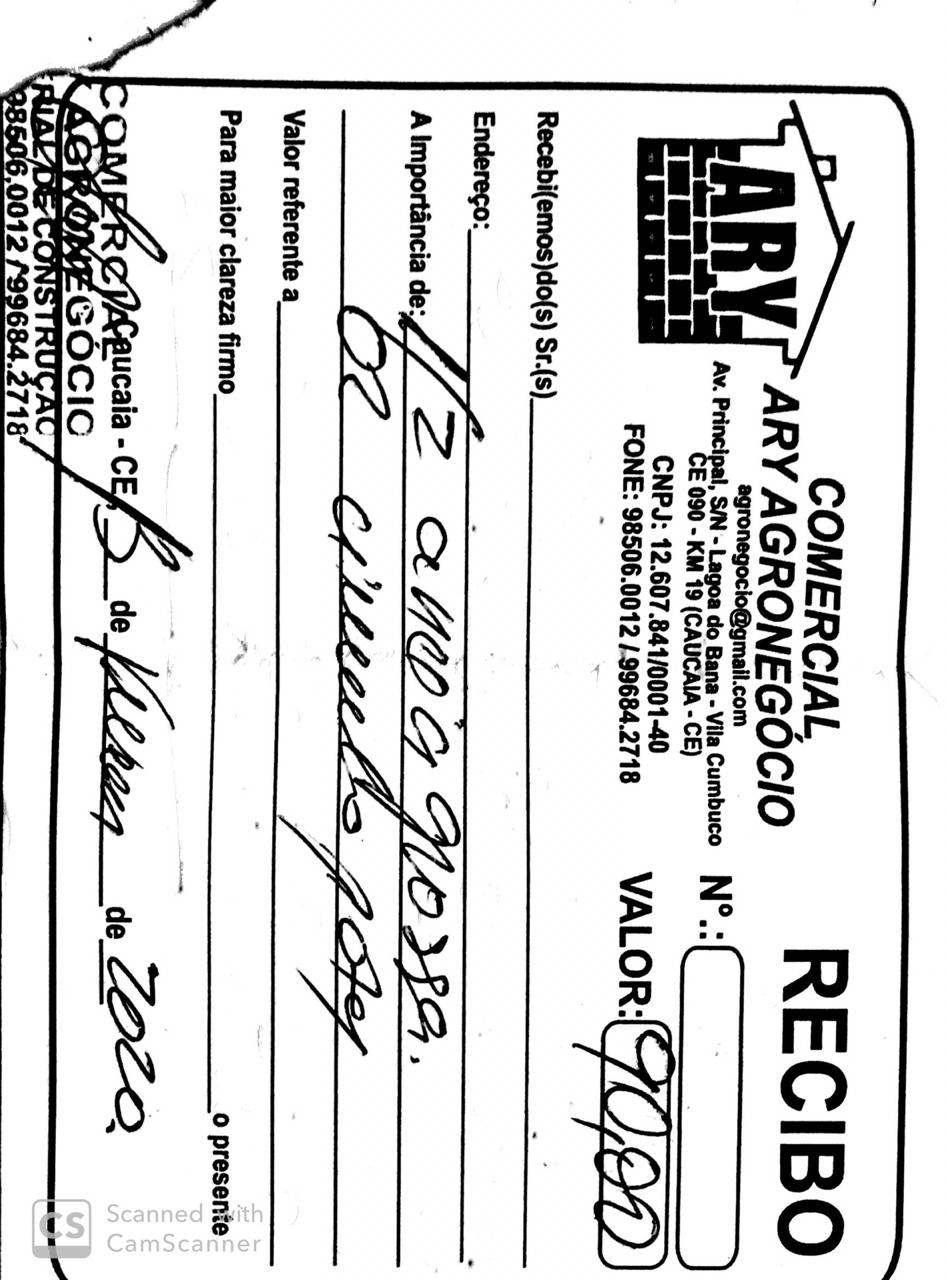 ARY
COMERCIAL
ARY AGRONEGÓCIO
agronegocio@gmail.com
Av. Principal, S/N - Lagoa do Bana - Vila Cumbuco
CE 090 - KM 19 (CAUCAIA - CE)
CNPJ: 12.607.841/0001-40
FONE: 98506.0012 / 99684.2718
RECIBO
Nº.:
VALOR: 90,00
Recebi(emos)do(s) Sr.(s)
Endereço:
A Importância de: 1/2 areia grossa.
02 cimento poty
Valor referente a
Para maior clareza firmo o presente
Caucaia - CE, de de 2020.
COMERCIAL
AGRONEGÓCIO
RIAL DE CONSTRUÇÃO
98506.0012 / 99684.2718
CS Scanned with
CamScanner